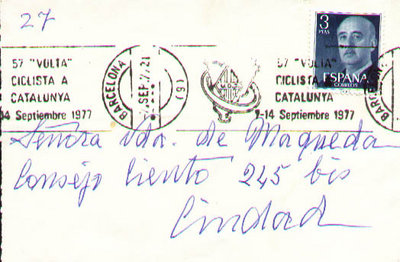 27
57 "VOLTA"
CICLISTA A
CATALUNYA
14 Septiembre 1977
BARCELONA
SEP. 77
(9)
57 "VOLTA"
CICLISTA A
CATALUNYA
7-14 Septiembre 1977
3
PTAS
ESPAÑA
CORREOS
BARCEL
Señora vda. de Maqueda
Consejo Ciento 245 bis
Ciudad